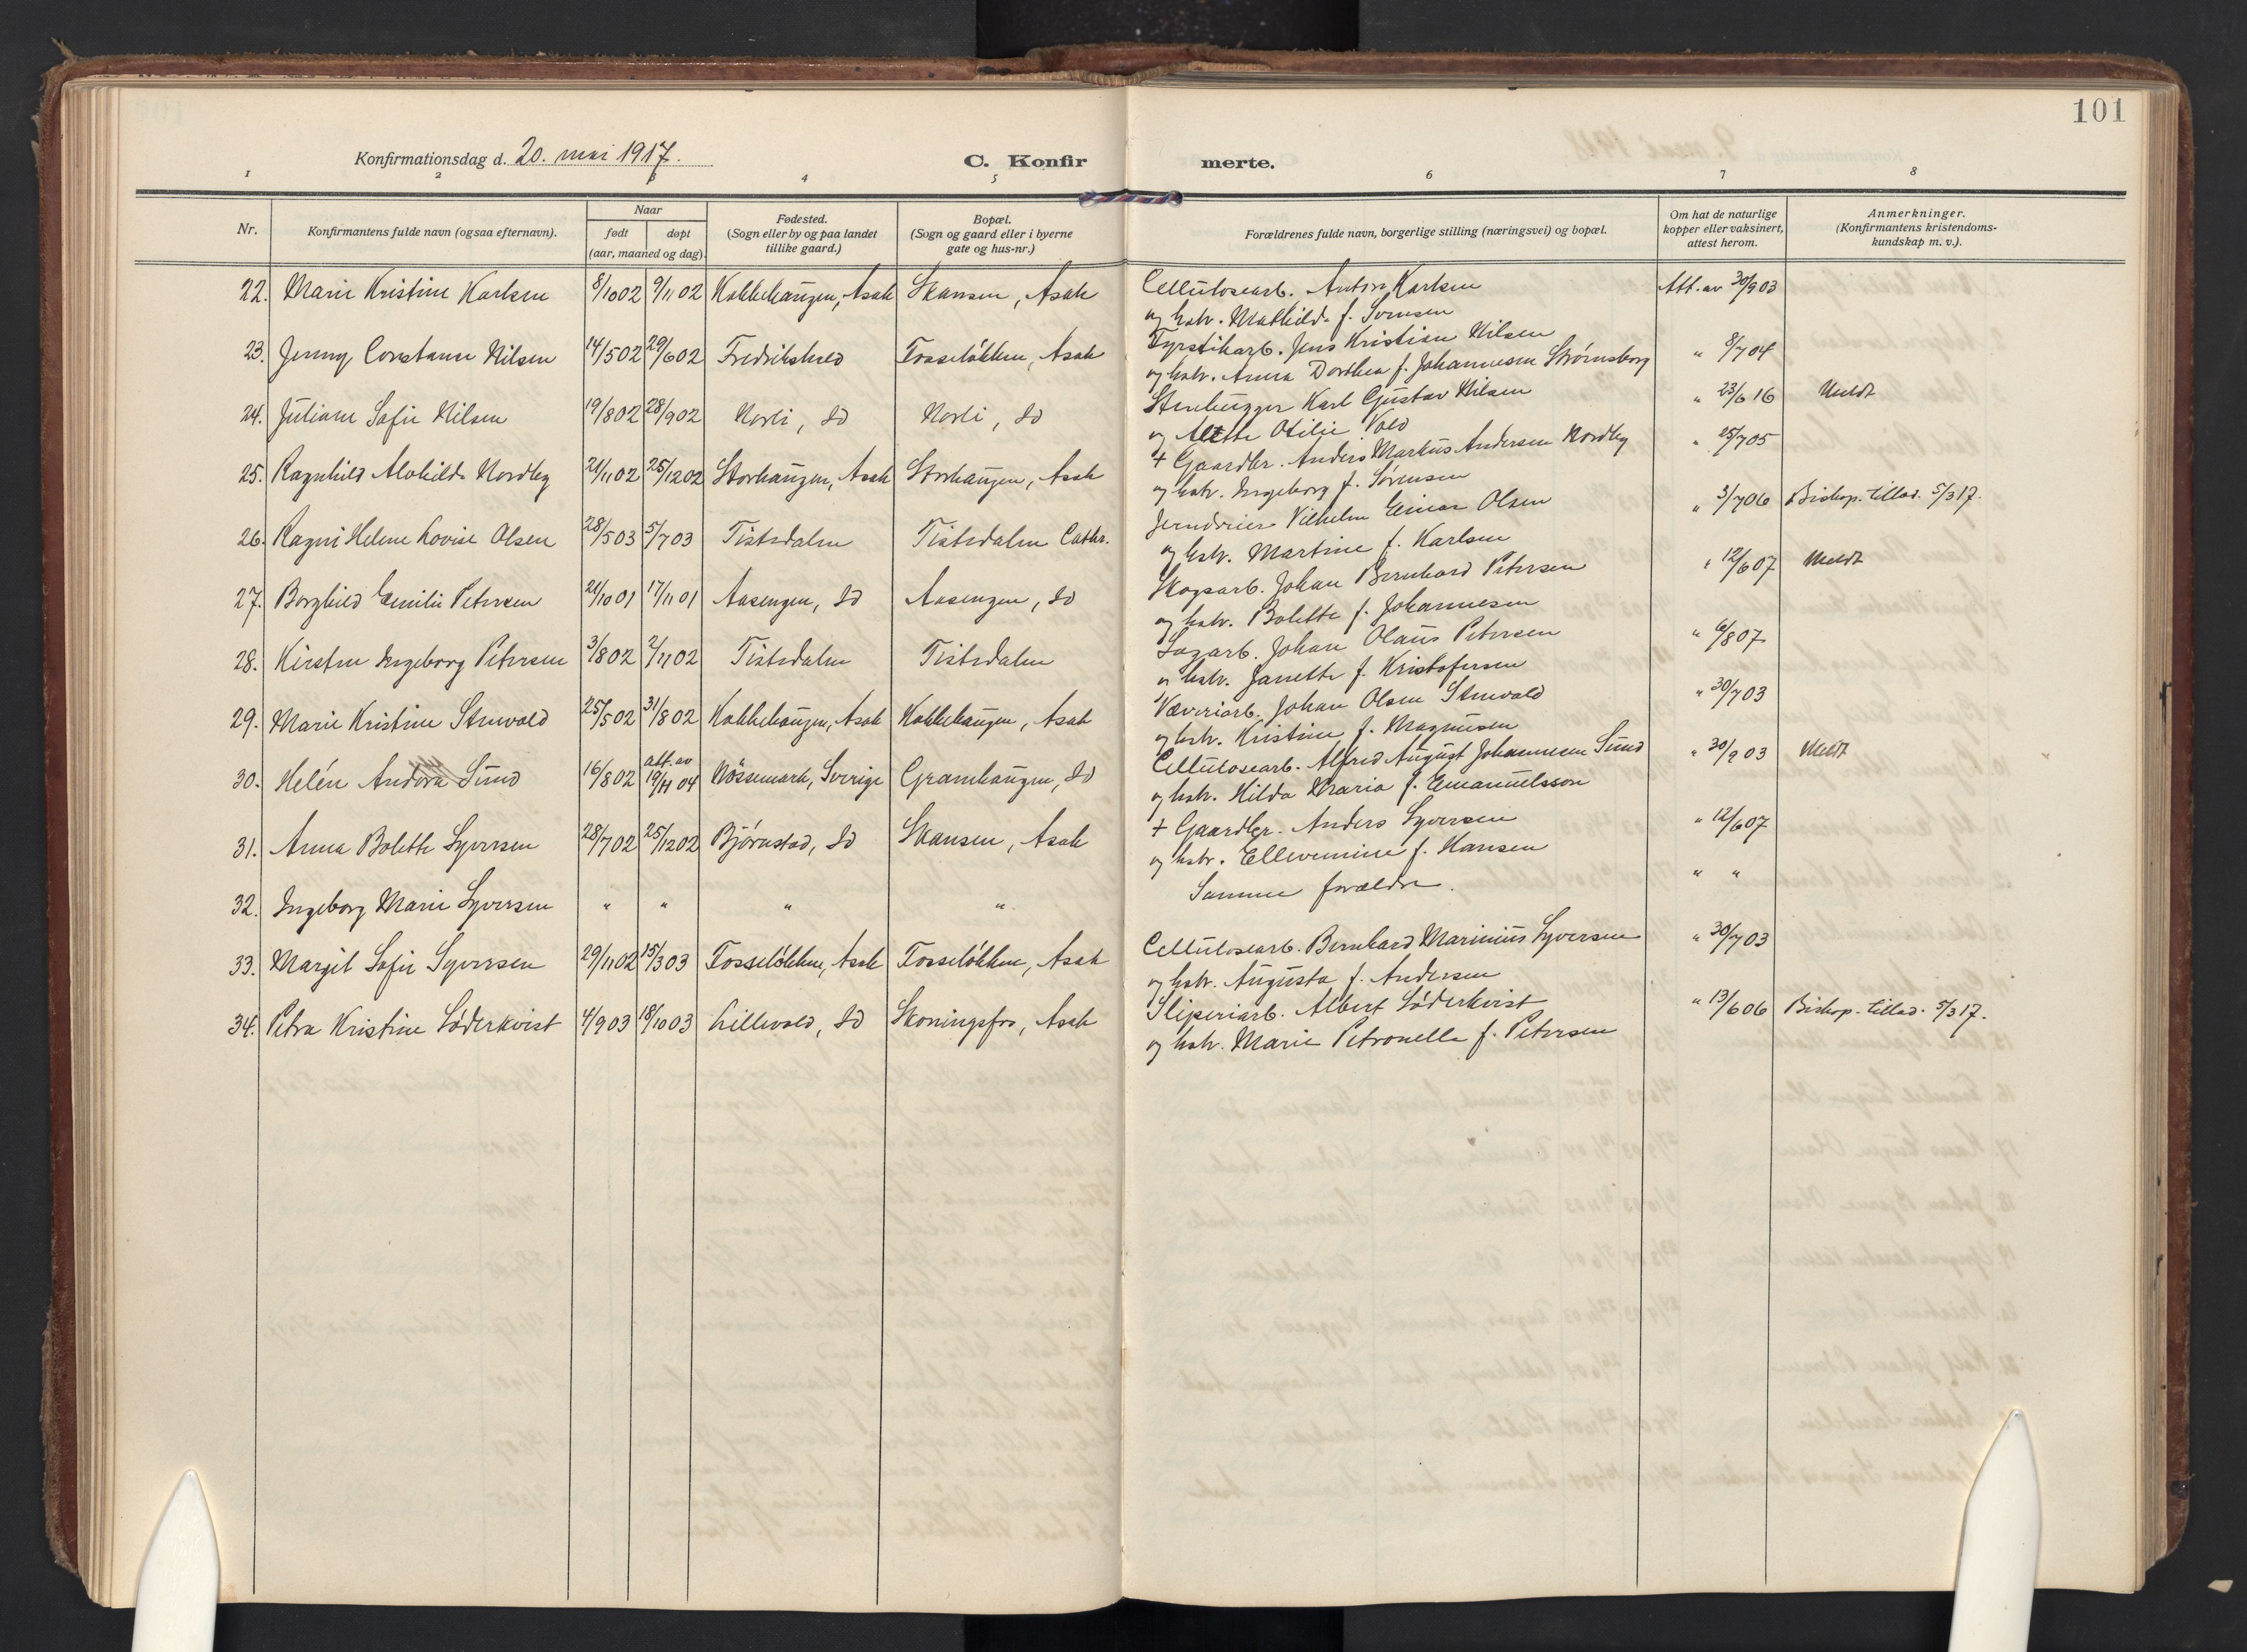 101
Konfirmationsdag d. 20. mai 1917.
C. Konfir merte.
1 2 3 4 5 6 7 8
Nr.
Konfirmantens fulde navn (ogsaa efternavn).
Naar
født døpt
(aar, maaned og dag).
Fødested.
(Sogn eller by og paa landet
tillike gaard.)
Bopæl.
(Sogn og gaard eller i byerne
gate og hus-nr.)
Forældrenes fulde navn, borgerlige stilling (næringsvei) og bopæl.
Om hat de naturlige
kopper eller vaksinert,
attest herom.
Anmerkninger.
(Konfirmantens kristendoms-
kundskap m. v.).
22. Marie Kristine Karlsen 8/10 02 9/11 02 Kokkehaugen, Asak Skansen, Asak Cellulosearb. Anton Karlsen Att. av 30/9 03
og hstr. Mathilde f. Sørensen
23. Jenny Constance Nilsen 14/5 02 29/6 02 Fredrikshald Fosseløkken, Asak Fyrstikarb. Jens Kristian Nilsen " 8/7 04
og hstr. Anna Dorthea f. Johannesen Strømsborg
24. Juliane Sofie Nilsen 19/8 02 28/9 02 Norli, Id Norli, Id Stenhugger Karl Gustav Nilsen " 23/6 16 Uveldt
og Alette Otilie Vold
25. Ragnhild Alvhilde Nordby 21/11 02 25/12 02 Storhaugen, Asak Storhaugen, Asak + Gaardbr. Anders Markus Andersen Nordby " 25/7 05
og hstr. Ingeborg f. Sørensen
26. Ragni Helene Lovise Olsen 28/5 03 5/7 03 Tistedalen Tistedalen Cathr. Jerndreier Vilhelm Einar Olsen " 3/7 06 Biskop. tillad. 5/3 17.
og hstr. Martine f. Karlsen
27. Borghild Emilie Petersen 21/10 01 17/11 01 Aasengen, Id Aasengen, Id Skogsarb. Johan Bernhard Petersen " 12/6 07 Uveldt
og hstr. Bolette f. Johannesen
28. Kirsten Ingeborg Petersen 3/8 02 2/11 02 Tistedalen Tistedalen Sagarb. Johan Olaus Petersen " 6/8 07
og hstr. Janette f. Kristofersen
29. Marie Kristine Stenvald 25/5 02 31/8 02 Kokkehaugen, Asak Kokkehaugen, Asak Væveriarb. Johan Olsen Stenvald " 30/7 03
og hstr. Kristine f. Magnusen
30. Helén Andora Sund 16/8 02 att. av 19/11 04 Nössemark, Sverige Gramhaugen, Id Cellulosearb. Alfred August Johannesen Sund " 30/9 03 Uveldt
og hstr. Hilda Maria f. Emanuelsson
31. Anna Bolette Syversen 28/7 02 25/12 02 Bjørnstad, Id Skansen, Asak + Gaardbr. Anders Syversen " 12/6 07
og hstr. Ellevemine f. Hansen
32. Ingeborg Marie Syversen " " " " Samme forældre. " "
33. Margit Sofie Syversen 29/11 02 15/3 03 Fosseløkken, Asak Fosseløkken, Asak Cellulosearb. Bernhard Marinius Syversen " 30/7 03
og hstr. Augusta f. Andersen
34. Petra Kristine Söderkvist 4/9 03 18/10 03 Lillevold, Id Skoningsfos, Asak Sliperiarb. Albert Söderkvist " 13/6 06 Biskop. tillad. 5/3 17.
og hstr. Marie Petronelle f. Petersen